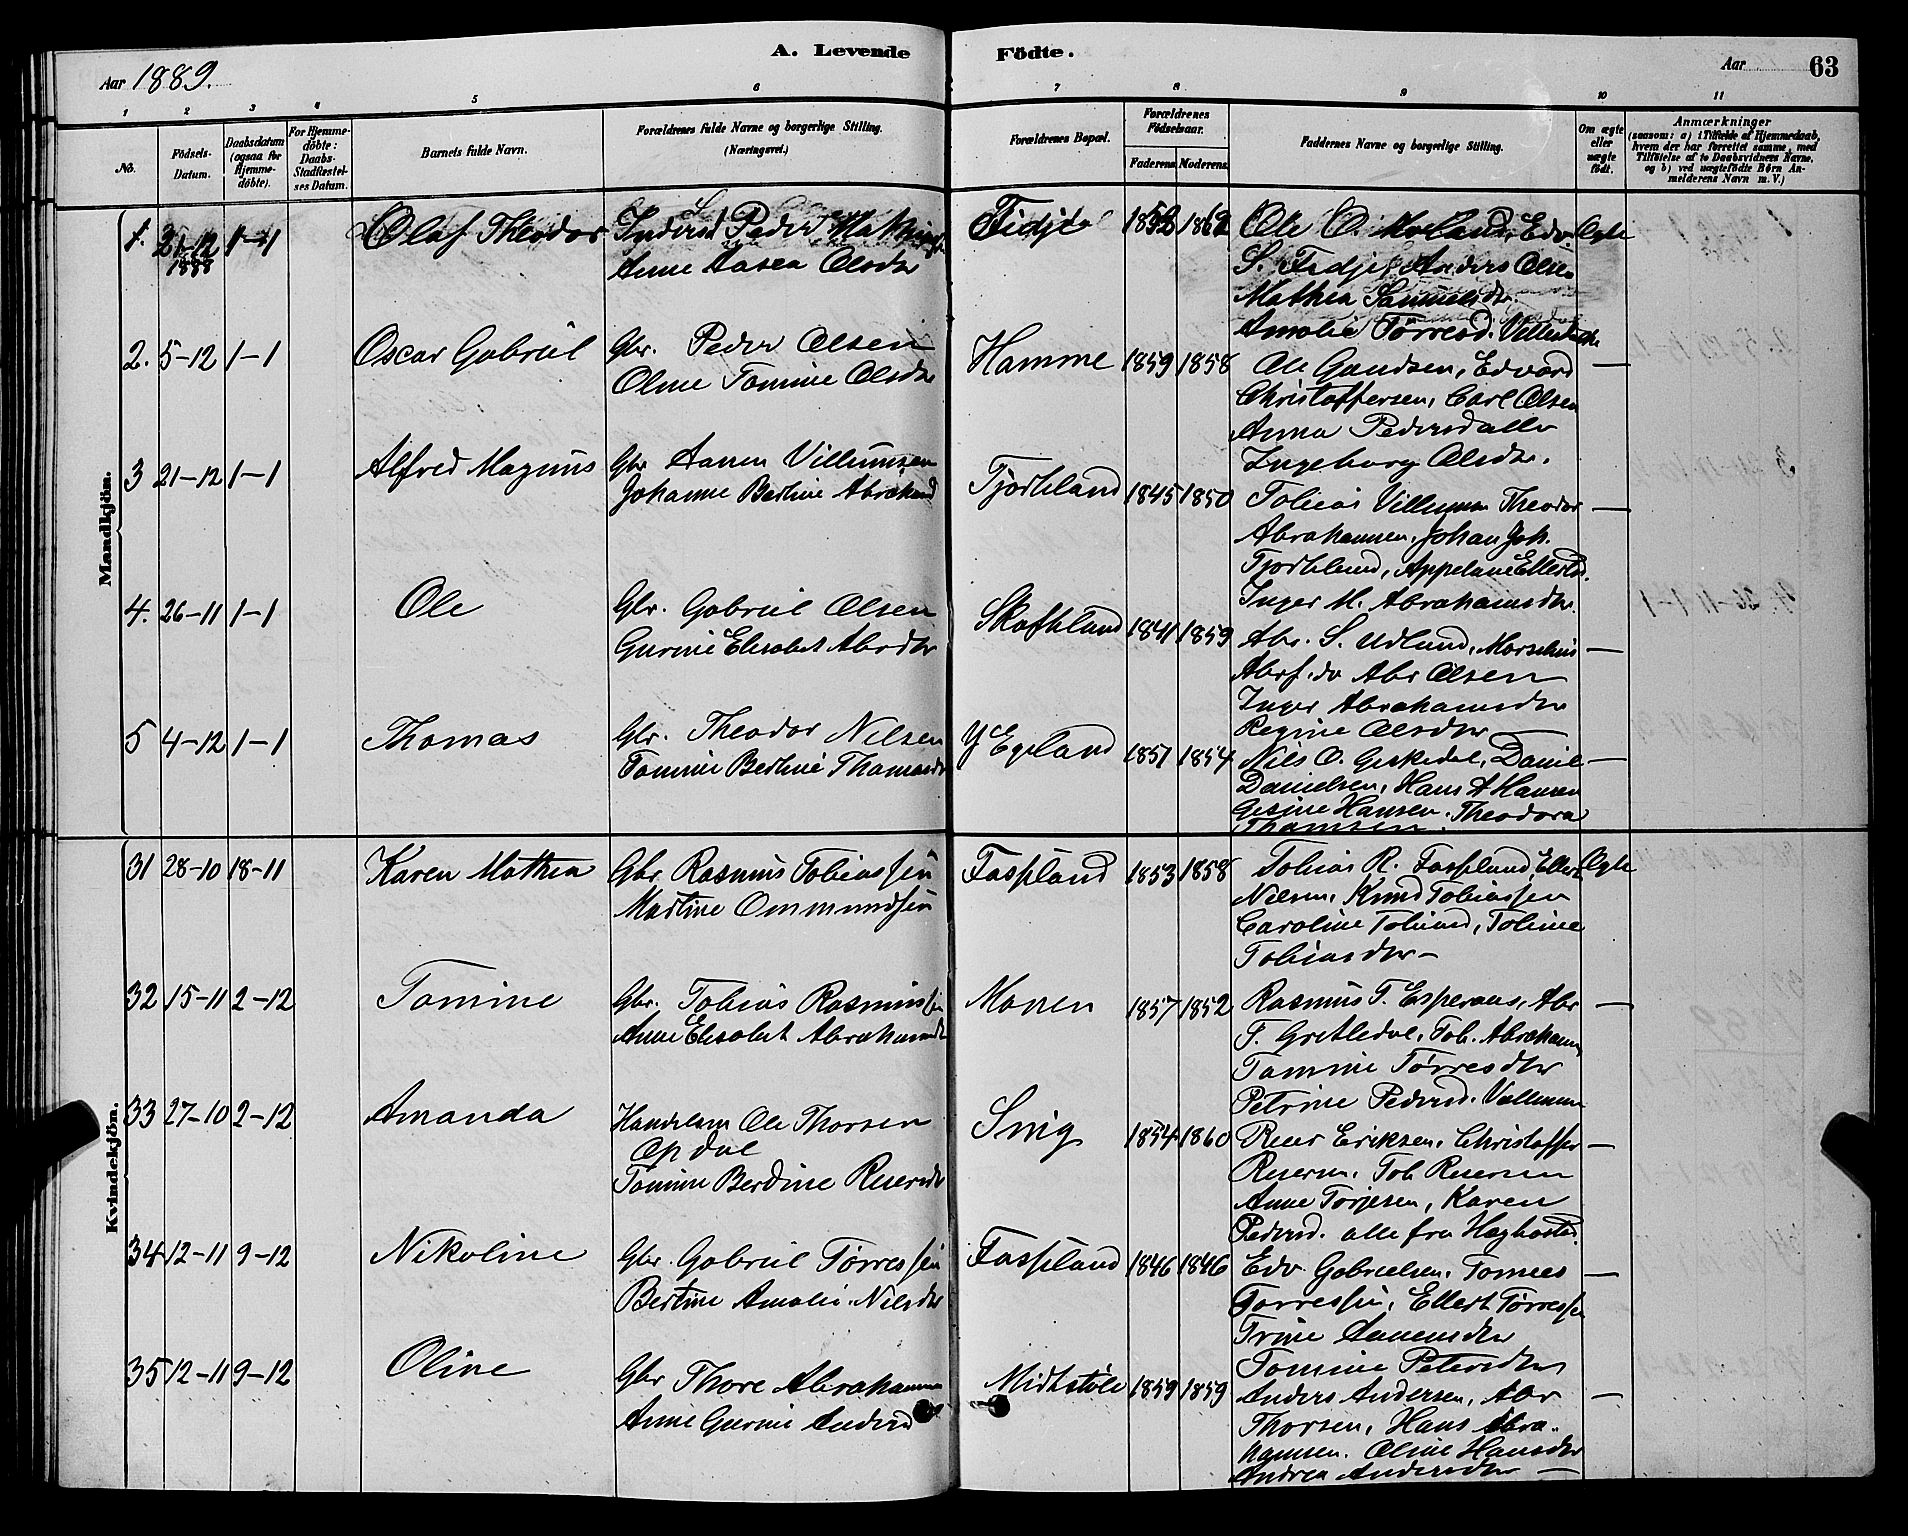 A. Levende Födte.
Aar 1889.
Aar 63
1 2 3 4 5 6 7 8 9 10 11
No.
Födsels-Datum.
Daabsdatum (ogsaa for Hjemme-döbte).
For Hjemme-döbte: Daabs-Stadfæstelses Datum.
Barnets fulde Navn.
Forældrenes fulde Navne og borgerlige Stilling.
(Næringsvei.)
Forældrenes Bopæl.
Forældrenes Födselsaar.
Faderens. Moderens.
Faddernes Navne og borgerlige Stilling.
Om ægte eller uægte födt.
Anmærkninger
(saasom: a) i Tilfælde af Hjemmedaab,
hvem der har forrettet samme, med
Tilföielse af to Daabsvidners Navne,
og b) ved uægtefödte Börn An-
melderens Navn m. V.)
Mandkjön.
1. 21-12 1888 1-1 Olaf Theodor
Peder
Anne Aasea Olsdtr
Fidje 1852 1862
Ole O.
S. Fidje, Anders Olsen
Mathea Samuelsdtr
Amalie Tørresd.
Ægte
2. 5-12 1-1 Oscar Gabriel
Gbr. Peder Olsen
Oline Tomine Olsdtr
Homme 1859 1858
Ole Gundsen, Edvard
Christoffersen, Carl Olsen
Anna Pedersdatter
Ingeborg Olsdtr.
—
3 21-12 1-1 Alfred Magnus
Gbr Aanen Villumsen
Johanne Bertine Abrahamsd
Tjorkland 1845 1850
Tobias Villumsen Theodor
Abrahamsen, Johan Joh.
Inger M. Abrahamsdtr
—
4. 26-11 1-1 Ole
Gbr. Gabriel Olsen
Gurine Elisabet Abrdtr
Skofteland 1841 1859
Abr. S. Udland,
Abr Olsen
Inger Abrahamsdtr
Regine Olsdtr
—
5 4-12 1-1 Thomas
Gbr. Theodor Nilsen
Tomine Bertine Thomasdtr
Y Egeland 1851 1854
Nils O. Geskedal, Daniel
Danielsen, Hans A Hansen
Gesine Hansen. Theodora
Thomsen.
—
Kvindekjön.
31 28-10 18-11 Karen Mathea
Gbr. Rasmus Tobiassen
Martine Ommundsen
Faspland 1853 1858
Tobias R. Faspland, Ellert
Nilsen, Knud Tobiassen
Caroline Tobiasd, Toline
Tobiasdtr —
Ægte
32 15-11 2-12 Tomine
Gbr. Tobias Rasmussen
Anne Elisabet Abrahamsdtr
Monen 1857 1852
Rasmus T. Esperaas, Abr
T. Gretledal, Tob. Abrahams
Tomine Tørresdtr
Petrine Pedersd.
—
33 27-10 2-12 Amanda
Handelsm Ole Thorsen
Opdal
Tomine Berdine Reiersdtr
Snig 1854 1860
Reier Eriksen, Christoffer
Reiersen, Tob Reiersen
Anne Torjesen, Karen
Pedersd. alle fra Hægbostad.
—
34 12-11 9-12 Nikoline
Gbr. Gabriel Tørressen
Bertine Amalie Nilsdtr
Faspland 1846 1846
Edv. Gabrielsen, Tomas
Torressen, Ellert Tørressen
Trine Aanensdtr
Tomine Petersdtr
—
35 12-11 9-12 Oline
Gbr Thore Abrahamsen
Anne Gurine Andersd
Midtstøl 1859 1859
Anders Andersen, Abr
Thorsen, Hans Abra-
hamsen. Oline Hansdtr
Andrea Andersdtr —
—